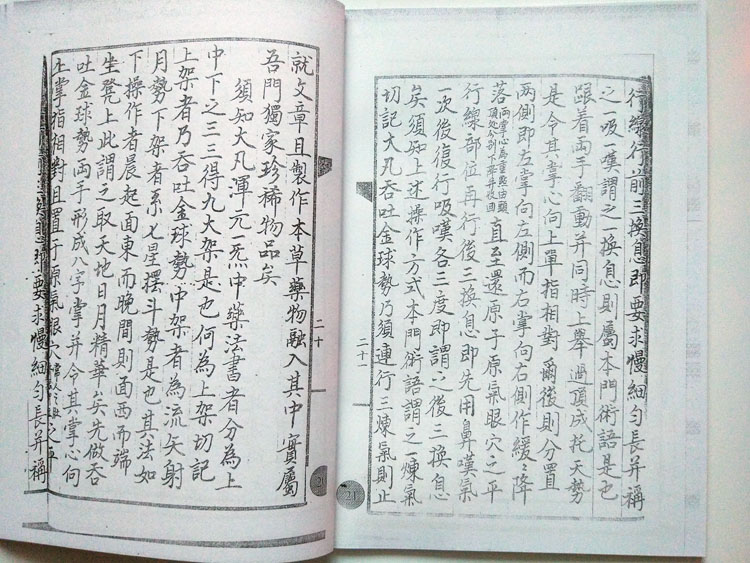 就文章且製作本草藥物融入其中實屬
吾門獨家珍稀物品矣
須知大凡渾元一炁中藥法書者分為上
中下之三三得九大架是也何為上架切記
上架者乃吞吐金球勢中架者為流矢射
月勢下架者系七星擺斗勢是也其法如
下操作者晨起面東而晚間則面西而端
坐凳上此謂之取天地日月精華矣先做吞
吐金球勢兩手形成八字掌并令其掌心向
上掌指相對且置于原氣眼穴之平
息即要求慢細勻長并稱
二十
21
行線行前三換息即要求慢細勻長并稱
之一吸一嘆謂之一換息則屬本門術語是也
跟着兩手翻動并同時上舉過頂成托天勢
是令其掌心向上單指相對爾後則分置
兩側即左掌向左側而右掌向右側作緩々降
落兩掌心為重點由頭
頂处分別下落并收回
直至還原子原氣眼穴之平
行線部位再行後三換息即先用鼻嘆氣
一次後復行吸嘆各三度即謂之後三換息
矣須知上述操作方式本門術語謂之一煉氣
切記大凡吞吐金球勢乃須連行三煉氣則止
二十一
21